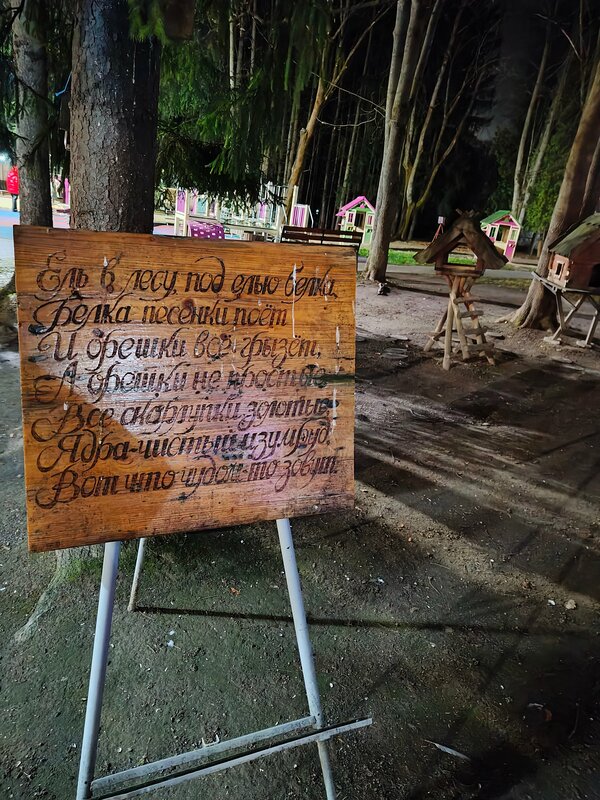 Ель в лесу, под елью белка,
Белка песенки поёт
И орешки всё грызёт,
А орешки не простые
Все скорлупки золотые
Ядра-чистый изумруд,
Вот что чудом-то зовут.